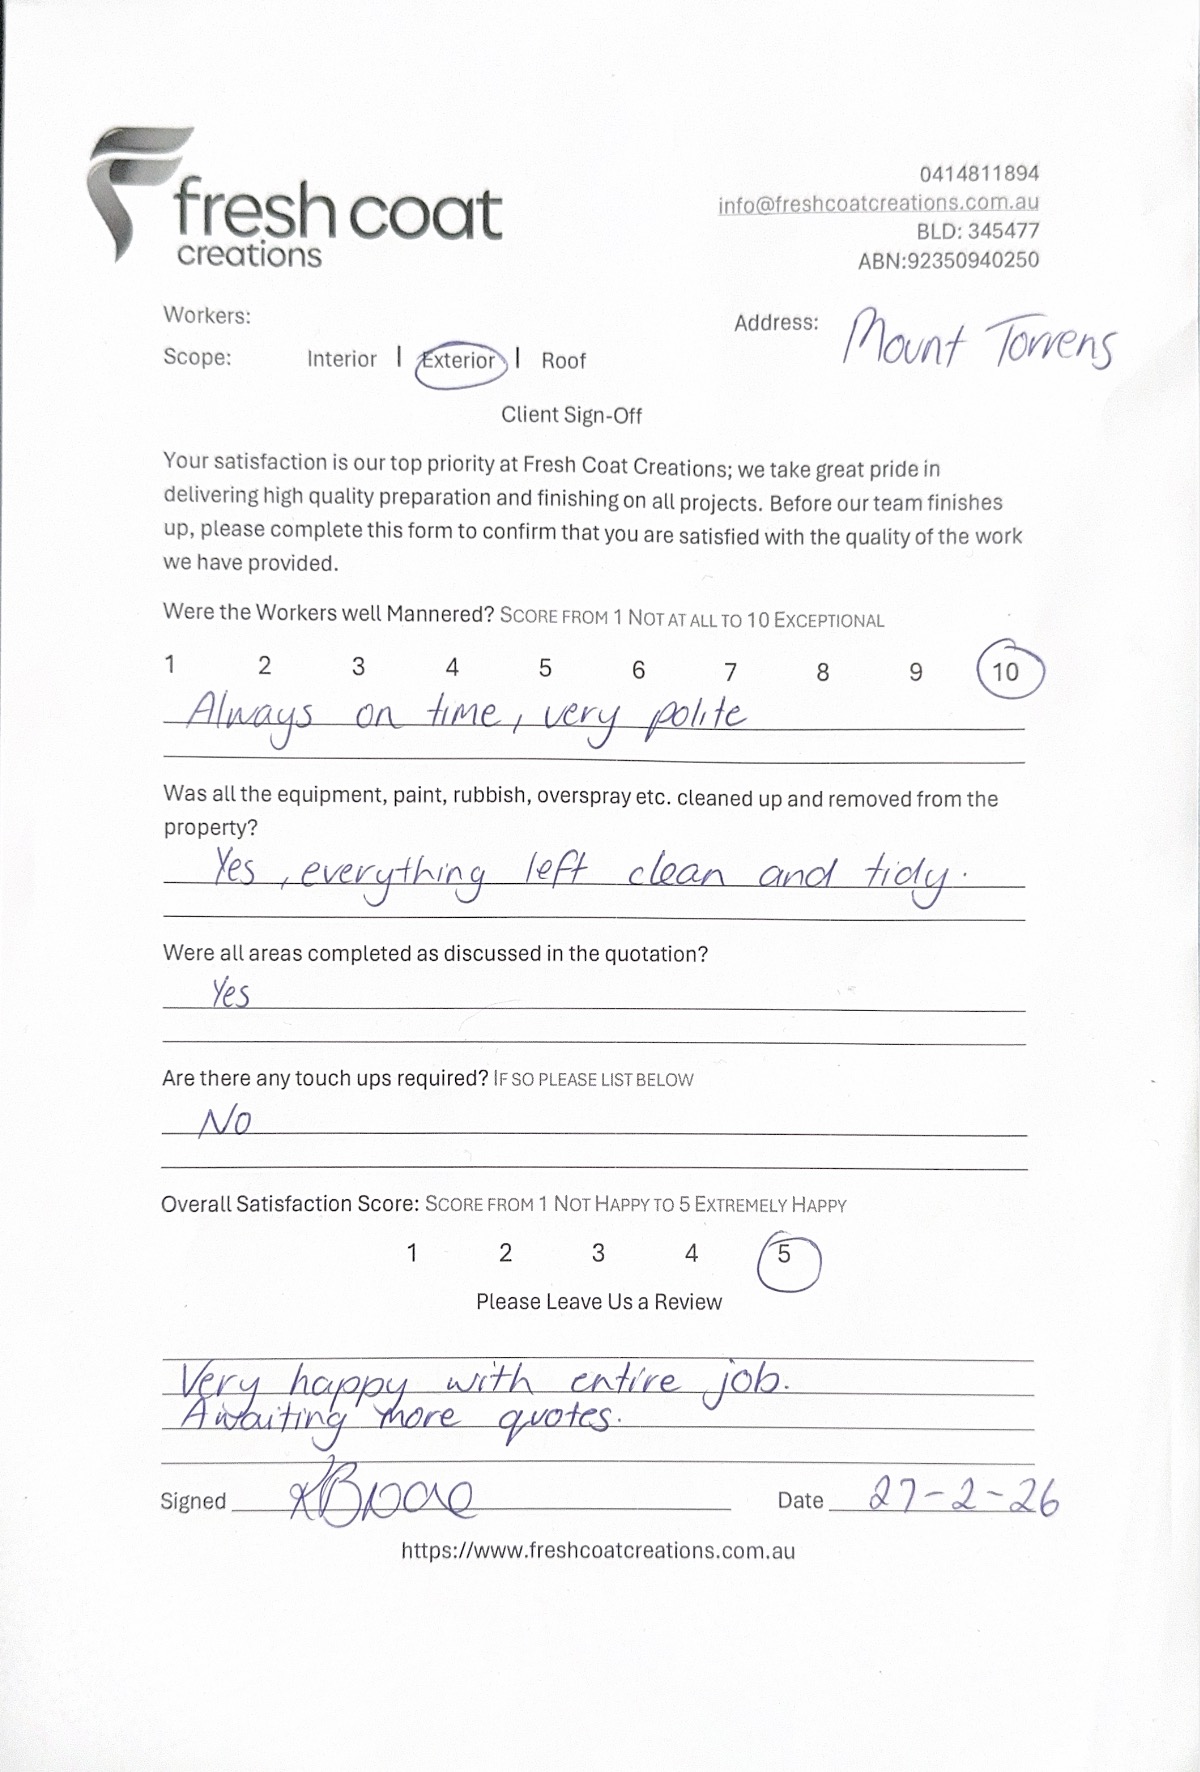 fresh coat
creations
0414811894
info@freshcoatcreations.com.au
BLD: 345477
ABN:92350940250
Workers:
Address: Mount Torrens
Scope: Interior | Exterior | Roof
Client Sign-Off
Your satisfaction is our top priority at Fresh Coat Creations; we take great pride in
delivering high quality preparation and finishing on all projects. Before our team finishes
up, please complete this form to confirm that you are satisfied with the quality of the work
we have provided.
Were the Workers well Mannered? SCORE FROM 1 NOT AT ALL TO 10 EXCEPTIONAL
1 2 3 4 5 6 7 8 9 10
Always on time, very polite
Was all the equipment, paint, rubbish, overspray etc. cleaned up and removed from the
property?
Yes, everything left clean and tidy.
Were all areas completed as discussed in the quotation?
Yes
Are there any touch ups required? IF SO PLEASE LIST BELOW
No
Overall Satisfaction Score: SCORE FROM 1 NOT HAPPY TO 5 EXTREMELY HAPPY
1 2 3 4 5
Please Leave Us a Review
Very happy with entire job.
Awaiting more quotes.
Signed
Date 27-2-26
https://www.freshcoatcreations.com.au